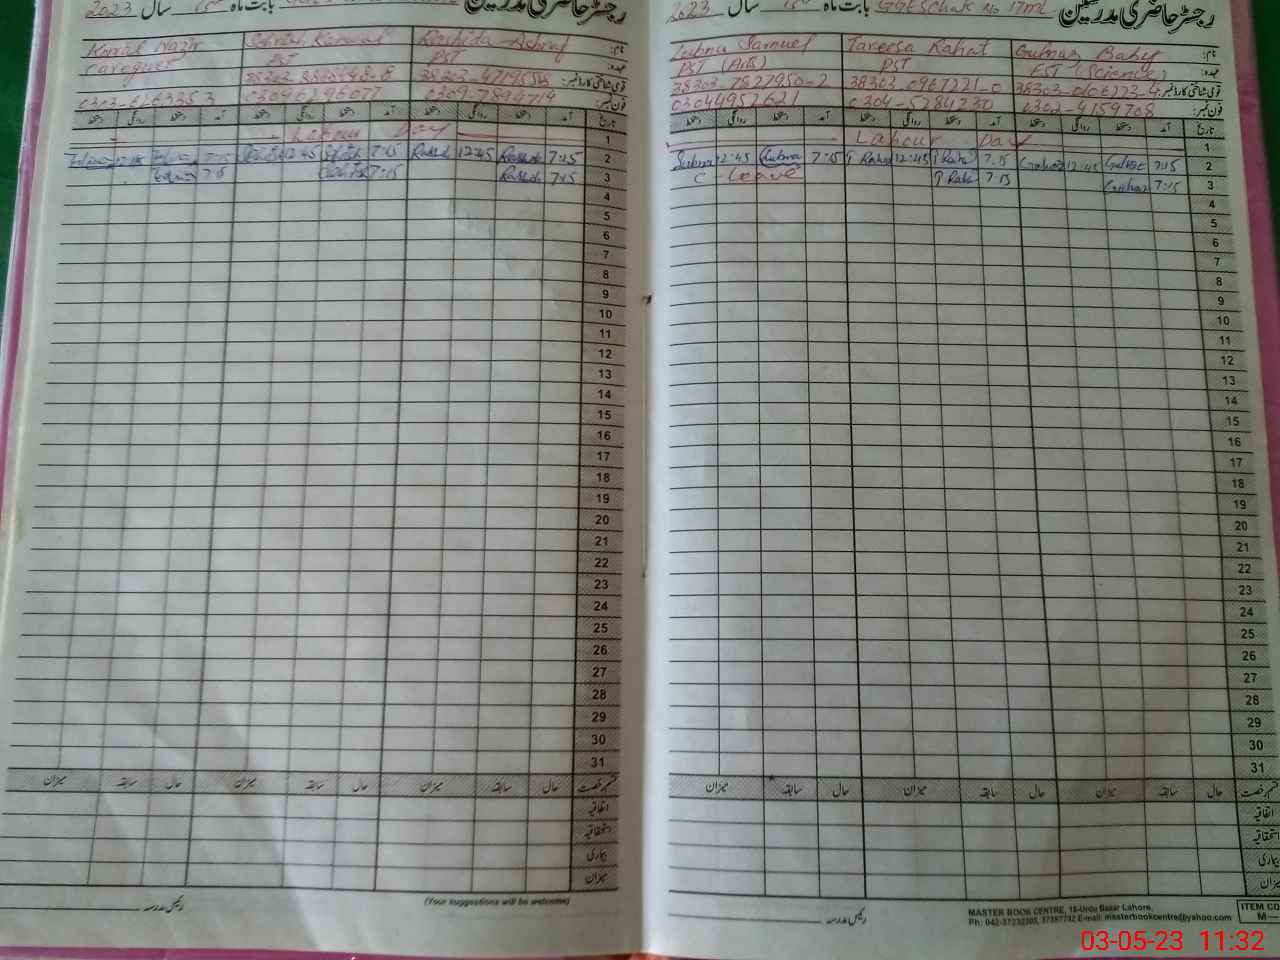 رجسٹر حاضری مدرسین بابت ماہ سال 2023
نام: Rashida Ashraf Sehrish Kanwal Komal Nazir
عہدہ: PST PST Caregiver
قومی شناختی کارڈ نمبر:
فون نمبر: 0309-7894714 03096296077
تاریخ آمد دستخط روانگی دستخط آمد دستخط روانگی دستخط آمد دستخط روانگی دستخط
1 Labour Day
2 7:15 Rashida 12:45 7:15 12:45
3 7:15 Rashida 7:15 7:15
4
5
6
7
8
9
10
11
12
13
14
15
16
17
18
19
20
21
22
23
24
25
26
27
28
29
30
31
قسم رخصت حال سابقہ میزان حال سابقہ میزان حال سابقہ میزان
اتفاقیہ
استحقاقیہ
بیماری
میزان
رئیس مدرسہ
(Your suggestions will be welcome)
رجسٹر حاضری مدرسین بابت ماہ GGES Chak No 17ML سال 2023
نام: Gulnaz Baby Tareesa Rahat Lubna Samuel
عہدہ: EST (Science) PST PST (Arts)
قومی شناختی کارڈ نمبر: 38303-0106223-4 38303-0967221-0 38303-7827950-2
فون نمبر: 0302-4159708 0304-5284230 03044952621
تاریخ آمد دستخط روانگی دستخط آمد دستخط روانگی دستخط آمد دستخط روانگی دستخط
1 Labour Day
2 7:15 Gulnaz 12:45 Gulnaz 7:15 T Rahat 12:45 T Rahat 7:15 Lubna 12:45 Lubna
3 7:15 Gulnaz 7:15 T Rahat C-leave
4
5
6
7
8
9
10
11
12
13
14
15
16
17
18
19
20
21
22
23
24
25
26
27
28
29
30
31
قسم رخصت حال سابقہ میزان حال سابقہ میزان حال سابقہ میزان
اتفاقیہ
استحقاقیہ
بیماری
میزان
رئیس مدرسہ
MASTER BOOK CENTRE, 16-Urdu Bazar Lahore.
Ph: 042-37232205, 37357732 E-mail: masterbookcentre@yahoo.com
ITEM CO
M—
03-05-23 11:32